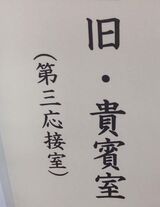 旧・貴賓室
（第三応接室）